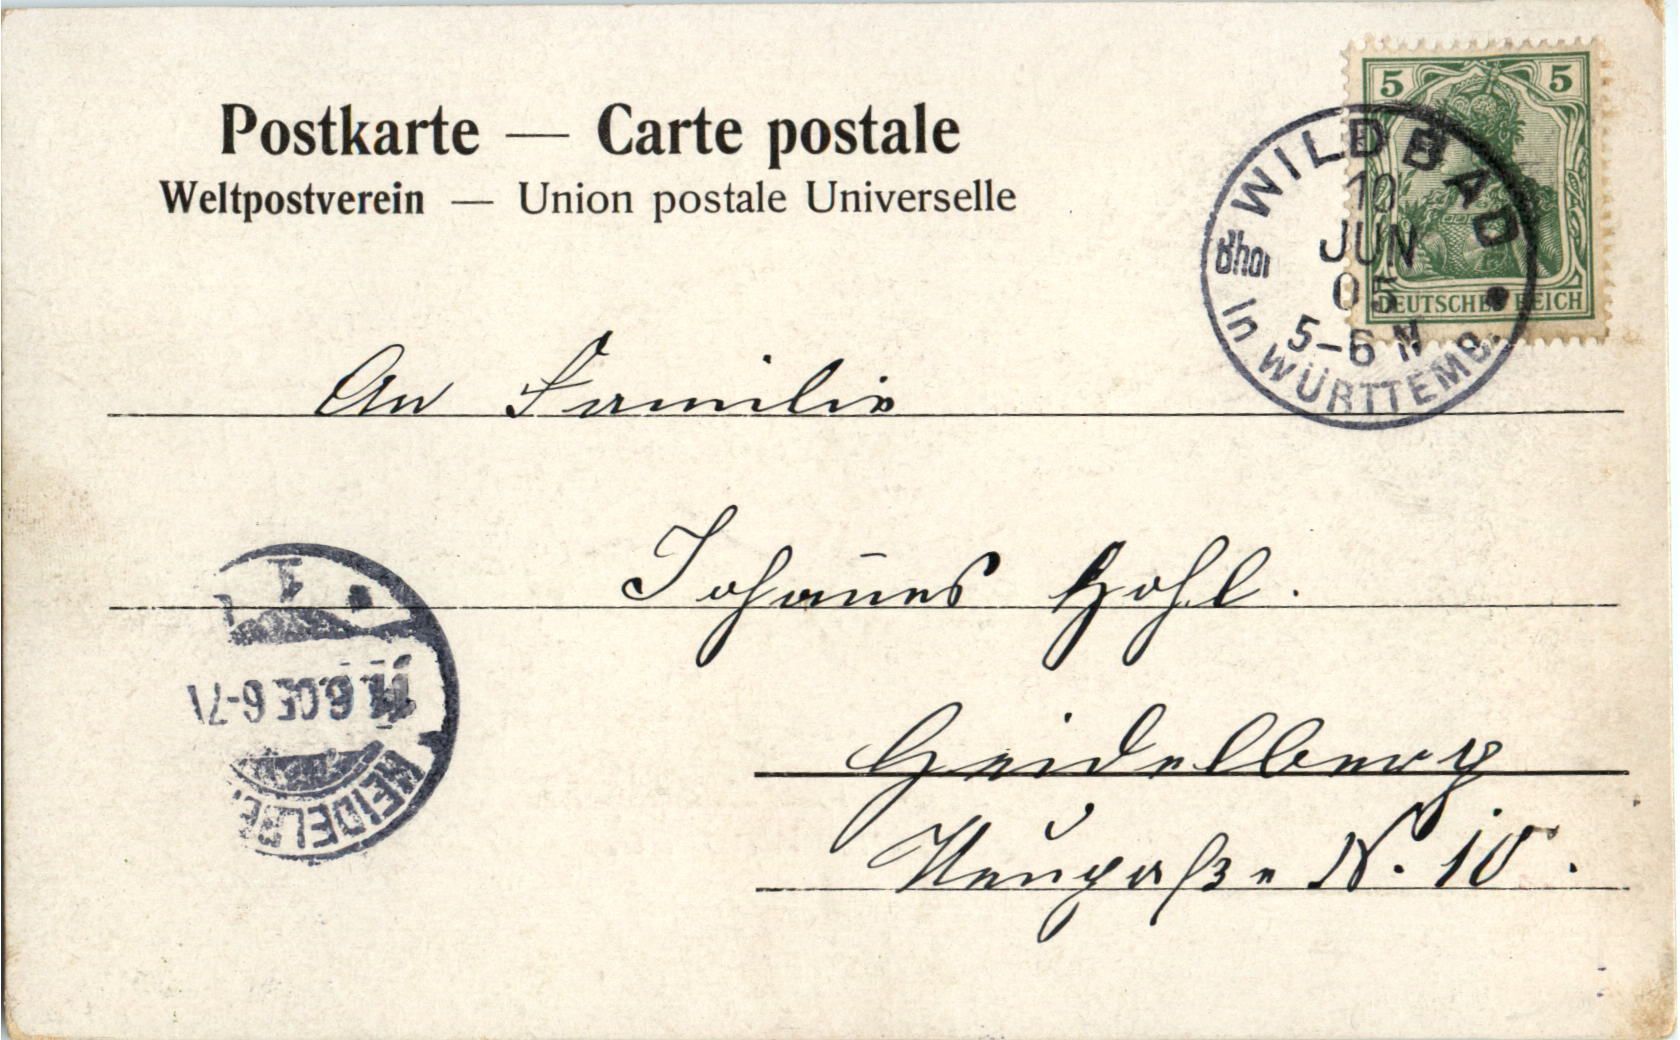 Postkarte — Carte postale
Weltpostverein — Union postale Universelle
5 5
DEUTSCHES REICH
WILDBAD
10
JUN
05
5-6 N
Bhof
in WÜRTTEMB.
An Familie
Joha͞nes Hohl.
Heidelberg
Neugaße N. 10.
1
11.6.05 6-7
HEIDELBE